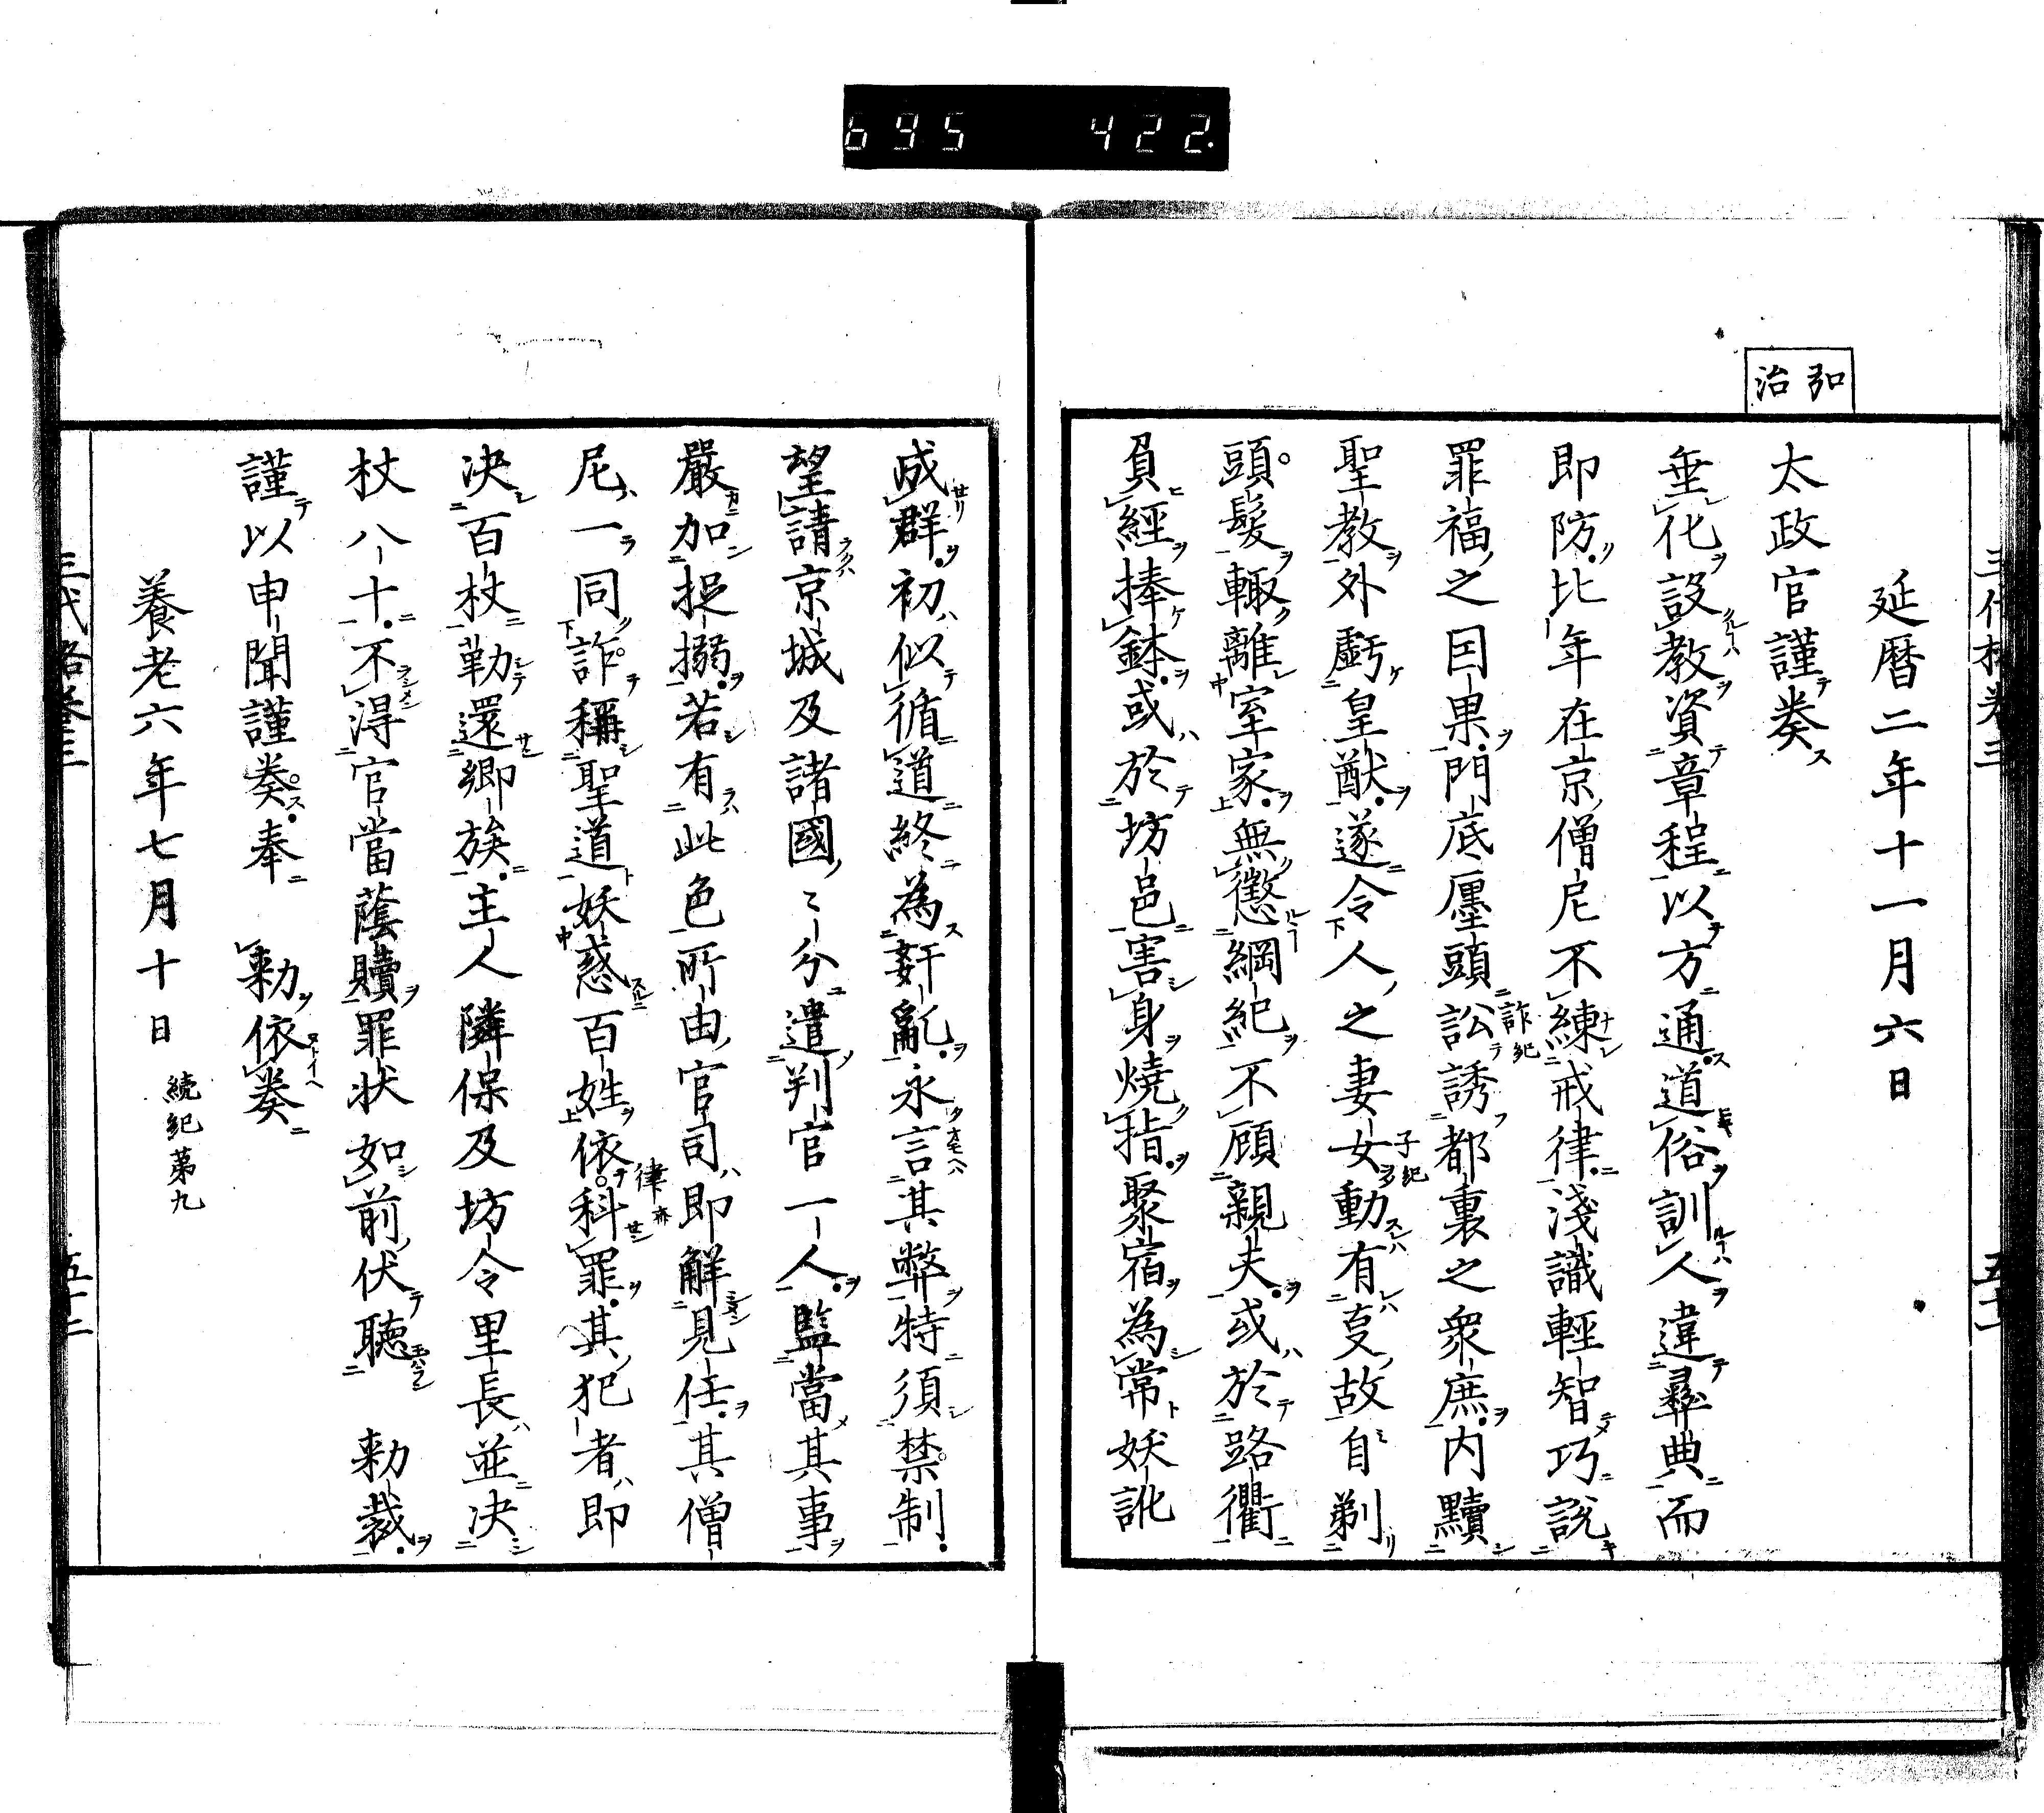 695 422.
弘治
延暦二年十一月六日
太政官謹奏
垂化設教資章程以方通道俗訓人違彝典而
即防比年在京僧尼不練戒律淺識輕智巧說
罪福之因果門底廛頭訟誘都裏之衆庶内黷
聖教外虧皇猷遂令人之妻女動有㕝故自剃
頭髮輙離室家無懲綱紀不顧親夫或於路衢
負經捧鉢或於坊邑害身燒指聚宿為常妖訛
成群初似循道終為姧亂永言其弊特須禁制
望請京城及諸國〻分遣判官一人監當其事
嚴加捉搦若有此色所由官司即解見任其僧
尼一同詐稱聖道妖惑百姓依科罪其犯者即
决百杖勒還鄉族主人隣保及坊令里長並决
杖八十不得官當蔭贖罪状如前伏聴 勅裁
謹以申聞謹奏奉 勅依奏
養老六年七月十日 続紀第九
三代格卷三